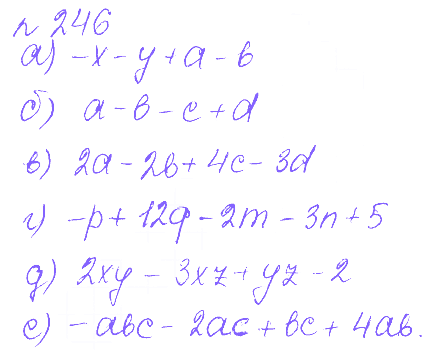 n 246
а) -x - y + a - b
б) a - b - c + d
в) 2a - 2b + 4c - 3d
г) -p + 12q - 2m - 3n + 5
д) 2xy - 3xz + yz - 2
е) -abc - 2ac + bc + 4ab.